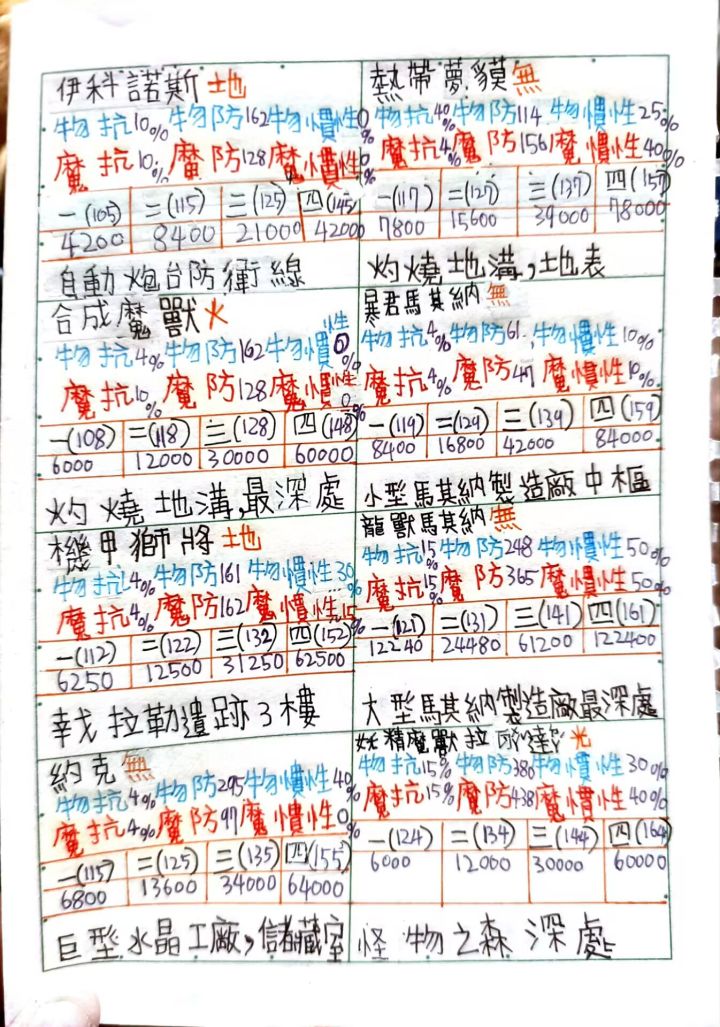 伊科諾斯 地
物抗10% 物防162 物慣性0%
魔抗10% 魔防128 魔慣性0%
一(105) 二(115) 三(125) 四(145)
4200 8400 21000 42000
自動炮台防衛線
合成魔獸 火
物抗4% 物防162 物慣性0%
魔抗10% 魔防128 魔慣性0%
一(108) 二(118) 三(128) 四(148)
6000 12000 30000 60000
灼燒地溝,最深處
機甲獅將 地
物抗4% 物防161 物慣性30%
魔抗4% 魔防162 魔慣性15%
一(112) 二(122) 三(132) 四(152)
6250 12500 31250 62500
拉勒遺跡3樓
約克 無
物抗4% 物防295 物慣性40%
魔抗4% 魔防97 魔慣性0%
一(115) 二(125) 三(135) 四(155)
6800 13600 34000 64000
巨型水晶工廠,儲藏室
熱帶夢貘 無
物抗40% 物防114 物慣性25%
魔抗4% 魔防156 魔慣性40%
一(117) 二(127) 三(137) 四(157)
7800 15600 39000 78000
灼燒地溝,地表
暴君馬其納 無
物抗4% 物防61 物慣性10%
魔抗4% 魔防47 魔慣性10%
一(119) 二(129) 三(139) 四(159)
8400 16800 42000 84000
小型馬其納製造廠中樞
龍獸馬其納 無
物抗15% 物防248 物慣性50%
魔抗15% 魔防365 魔慣性50%
一(121) 二(131) 三(141) 四(161)
12240 24480 61200 122400
大型馬其納製造廠最深處
妖精魔獸拉 達 光
物抗15% 物防380 物慣性30%
魔抗15% 魔防438 魔慣性40%
一(124) 二(134) 三(144) 四(164)
6000 12000 30000 60000
怪物之森深處